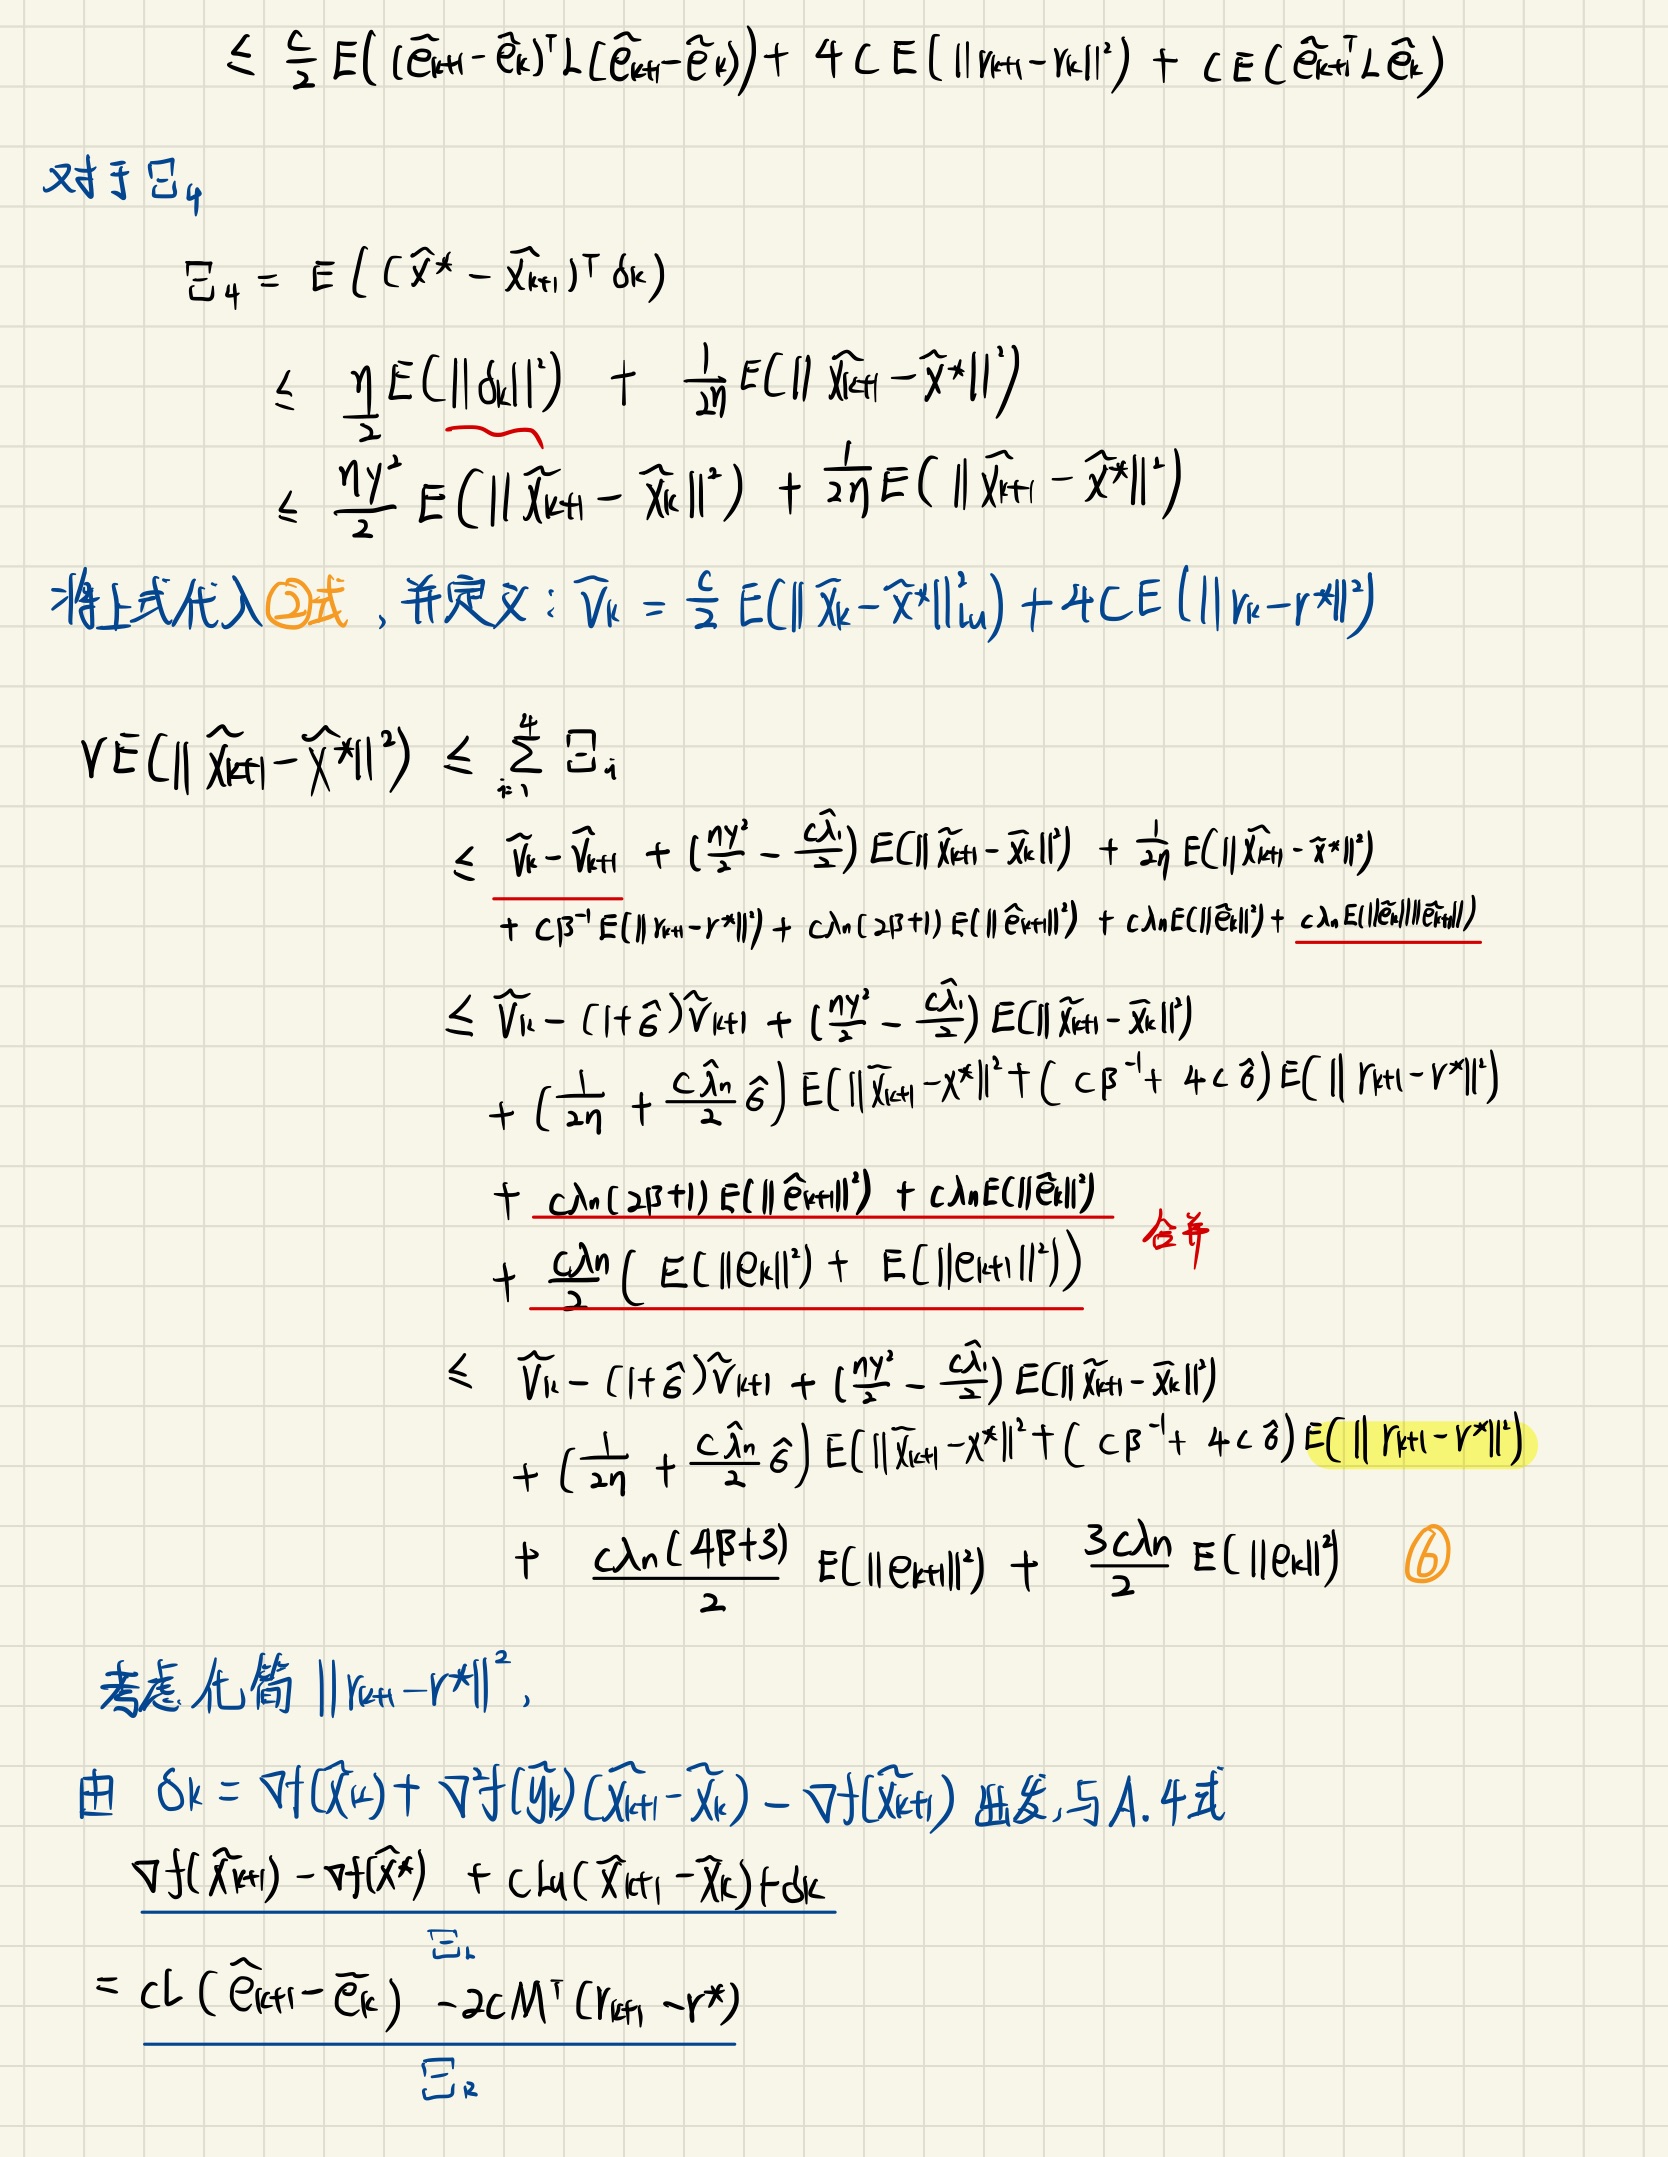 ≤ c/2 E((ê_{k+1} - ê_k)^T L(ê_{k+1} - ê_k)) + 4cE(||r_{k+1} - r_k||²) + cE(ê_{k+1}^T L ê_k)
对于 Ξ₄
Ξ₄ = E((x̂* - x̂_{k+1})^T δ_k)
≤ η/2 E(||δ_k||²) + 1/(2η) E(||x̂_{k+1} - x̂*||²)
≤ ηγ²/2 E(||x̂_{k+1} - x̂_k||²) + 1/(2η) E(||x̂_{k+1} - x̂*||²)
将上式代入②式,并定义: V̂_k = c/2 E(||x̂_k - x̂*||²_{Lu}) + 4cE(||r_k - r*||²)
γE(||x̂_{k+1} - x̂*||²) ≤ Σ_{i=1}^{4} Ξ_i
≤ V̂_k - V̂_{k+1} + (ηγ²/2 - cλ̂₁/2) E(||x̂_{k+1} - x̂_k||²) + 1/(2η) E(||x̂_{k+1} - x̂*||²)
+ cβ⁻¹E(||r_{k+1} - r*||²) + cλ_n(2β+1)E(||ê_{k+1}||²) + cλ_nE(||ê_k||²) + cλ_nE(||ê_k||||ê_{k+1}||)
≤ V̂_k - (1+σ̂)V̂_{k+1} + (ηγ²/2 - cλ̂₁/2) E(||x̂_{k+1} - x̂_k||²)
+ (1/(2η) + cλ̂_n/2 σ̂) E(||x̂_{k+1} - x*||² + (cβ⁻¹ + 4cσ̂)E(||r_{k+1} - r*||²)
+ cλ_n(2β+1)E(||ê_{k+1}||²) + cλ_nE(||ê_k||²) 合并
+ cλ_n/2 (E(||e_k||²) + E(||e_{k+1}||²))
≤ V̂_k - (1+σ̂)V̂_{k+1} + (ηγ²/2 - cλ̂₁/2) E(||x̂_{k+1} - x̂_k||²)
+ (1/(2η) + cλ̂_n/2 σ̂) E(||x̂_{k+1} - x*||² + (cβ⁻¹ + 4cσ̂)E(||r_{k+1} - r*||²)
+ cλ_n(4β+3)/2 E(||e_{k+1}||²) + 3cλ_n/2 E(||e_k||²) ⑥
考虑化简 ||r_{k+1} - r*||²,
由 δ_k = ∇f(x̂_k) + ∇²f(ŷ_k)(x̂_{k+1} - x̂_k) - ∇f(x̂_{k+1}) 出发,与A.4式
∇f(x̂_{k+1}) - ∇f(x̂*) + cLu(x̂_{k+1} - x̂_k) + δ_k
Ξ_L
= cL(ê_{k+1} - ê_k) - 2cM^T(r_{k+1} - r*)
Ξ_R